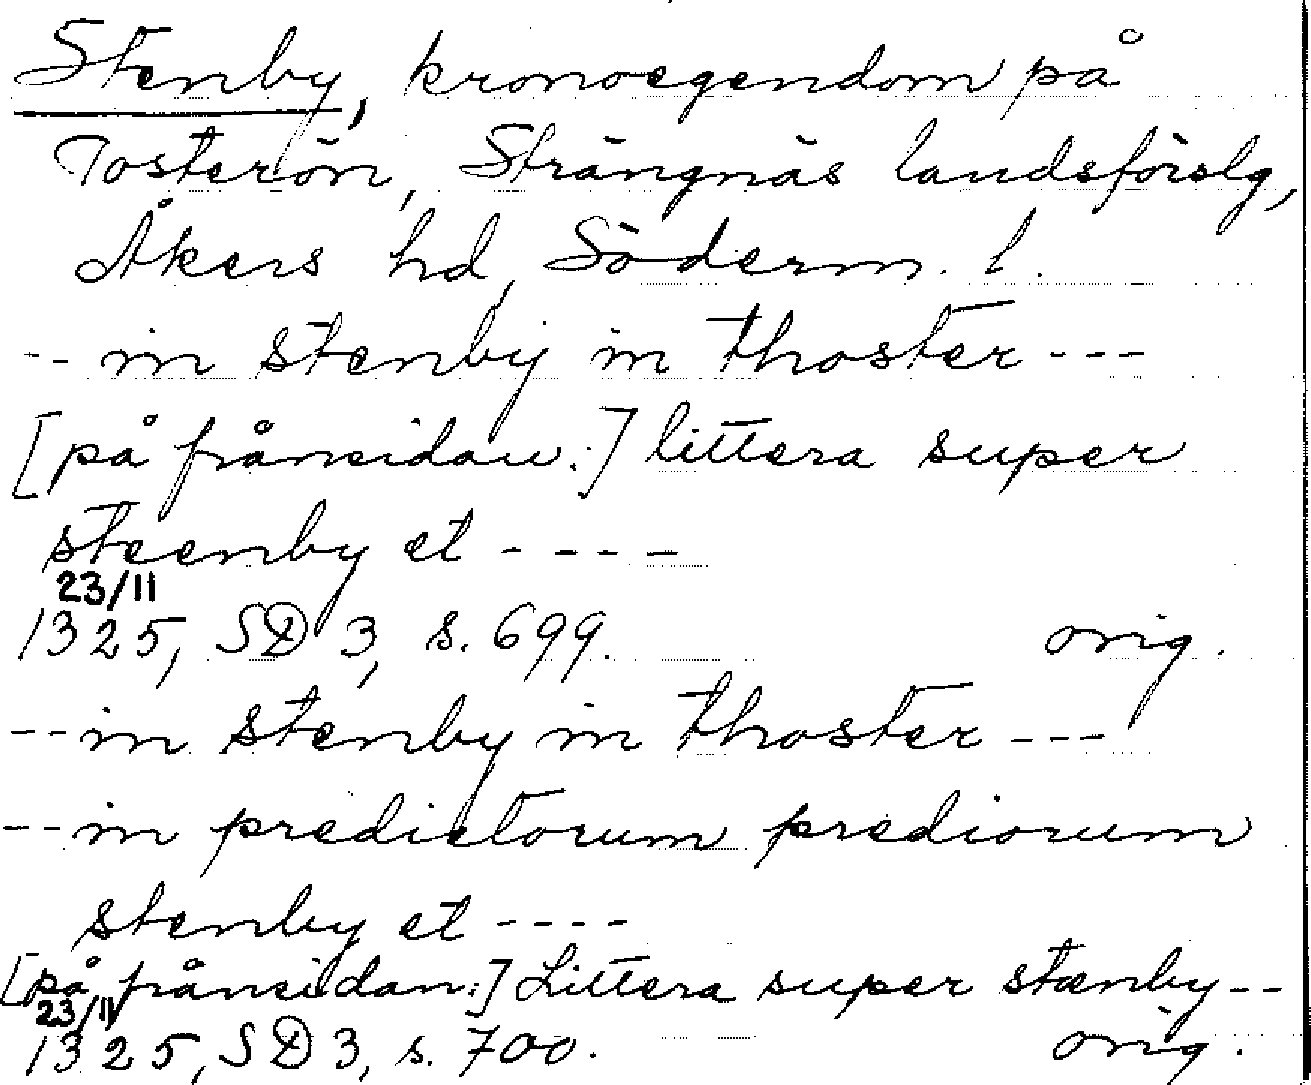 Stenby, kronoegendom på
Tosterön, Strängnäs landsförslg,
Åkers hd, Söderm. l.
-- in stenby in thoster ---
[på frånsidan:] littera super
steenby et ----
23/11
1325, SD 3, s. 699. orig.
-- in stenby in thoster ---
-- in predictorum prediorum
stenby et ----
[på frånsidan:] Littera super stænby --
23/11
1325, SD 3, s. 700. orig.